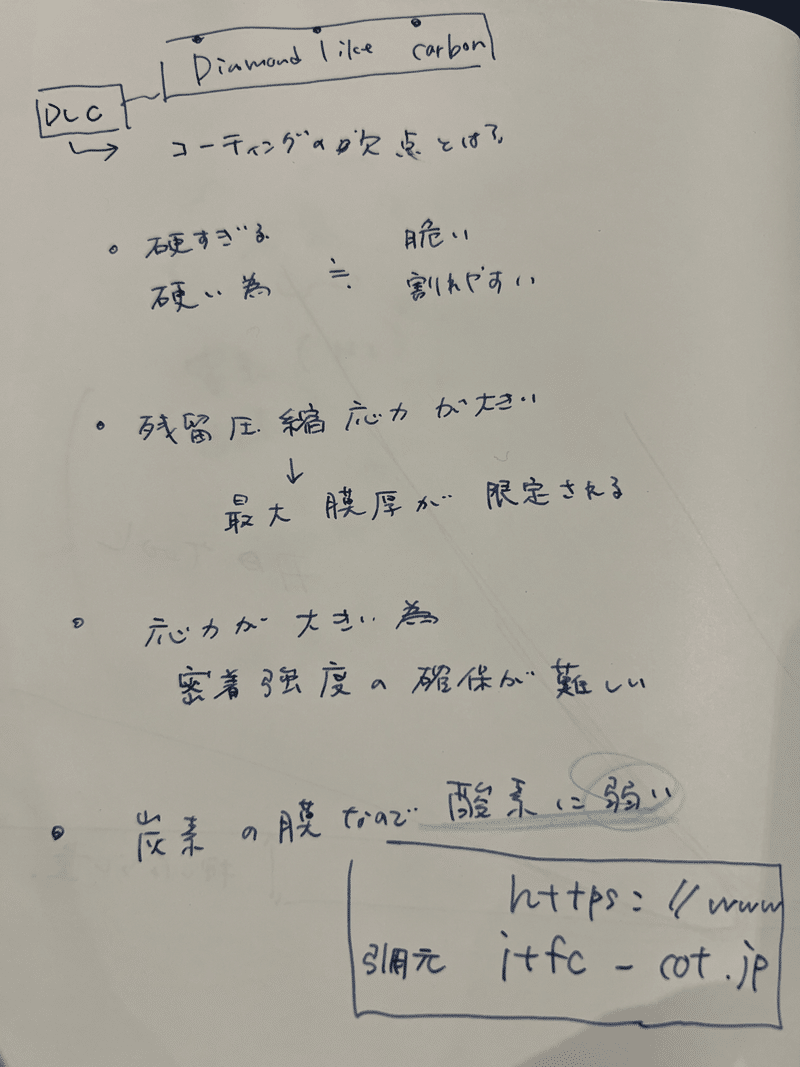 Diamond like carbon
DLC
コーティングの欠点とは?
・硬すぎる 脆い
硬い為 ≒ 割れやすい
・残留圧縮応力が大きい
↓
最大膜厚が限定される
・応力が大きい為
密着強度の確保が難しい
・炭素の膜なので酸素に弱い
https://www
引用元 itfc-cot.jp